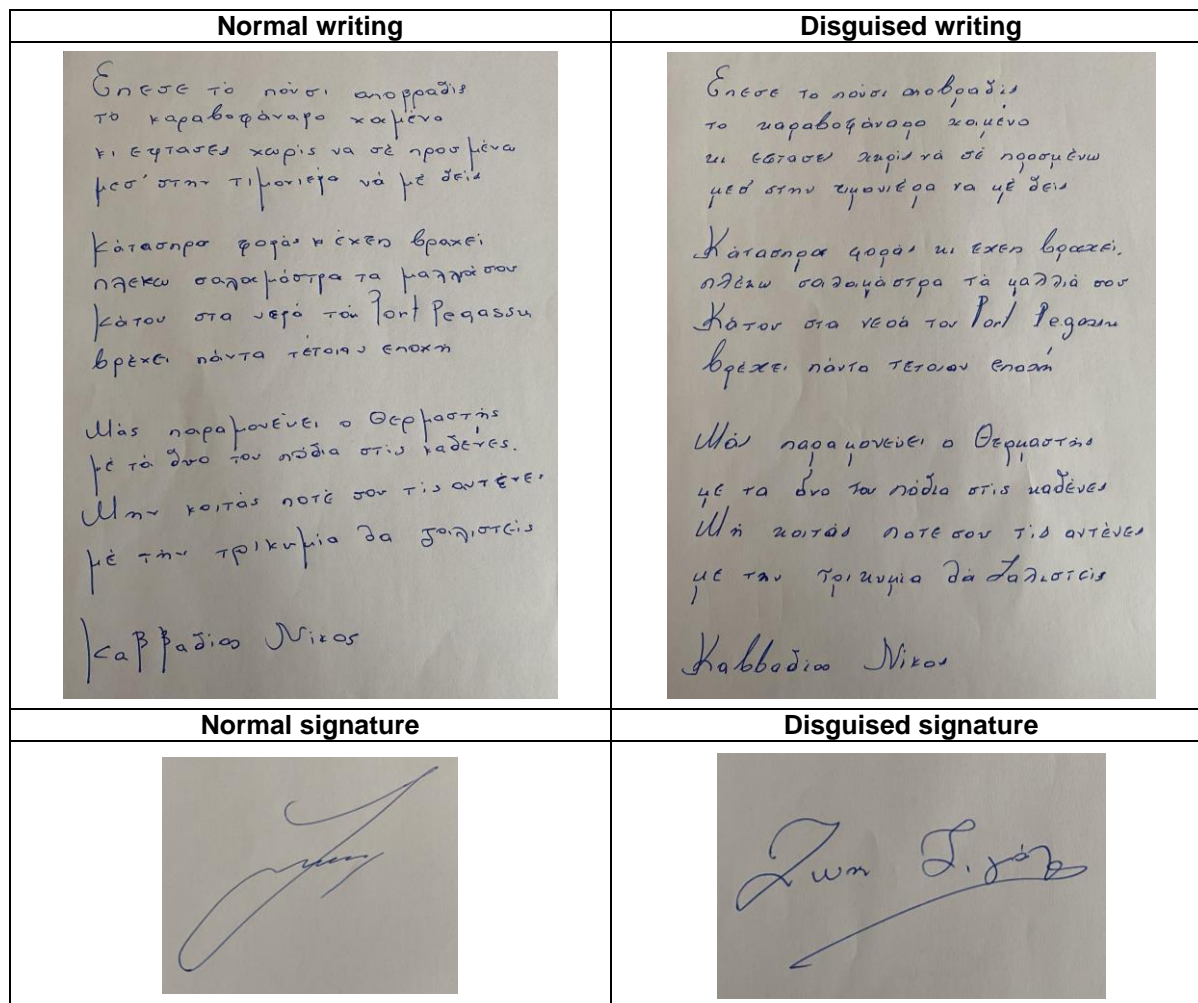 Normal writing
Disguised writing
Επεσε τὸ πούσι αποβραδίς
το καραβοφάναρο χαμένο
κι εφτασες χωρίς να σέ προσμένω
μεσ' στην τιμονιέρα νά μέ δεις
Κάτασπρα φοράς κι έχεις βραχεί
πλεκω σαλαμάστρα τα μαλλιά σου
Κάτου στα νερά του Port Pegassu
βρέχει πάντα τέτοιαν εποχή
Μάς παραμονεύει ο Θερμαστής
μέ τά δυο του πόδια στις καδένες.
Μην κοιτάς ποτέ σου τίς αντένες
μέ την τρικυμία θα ζαλιστείς
Καββαδίας Νικος
Επεσε το πούσι αποβραδίς
το καραβοφάναρο χαμένο
κι εφτασες χωρίς νά σέ προσμένω
μεσ' στην τιμονιέρα να μέ δεις
Κάτασπρα φοράς κι εχεις βραχεί.
πλέκω σαλαμάστρα τά μαλλιά σου
Κάτου στα νερά του Port Pegassu
βρέχει πάντα τέτοιαν εποχή
Μάς παραμονεύει ο Θερμαστής
με τα δυο του πόδια στις καδένες
Μή κοιτάς ποτε σου τίς αντένες
με την τρικυμία θά ζαλιστείς
Καββαδίας Νικος
Normal signature
Disguised signature
Ζωη